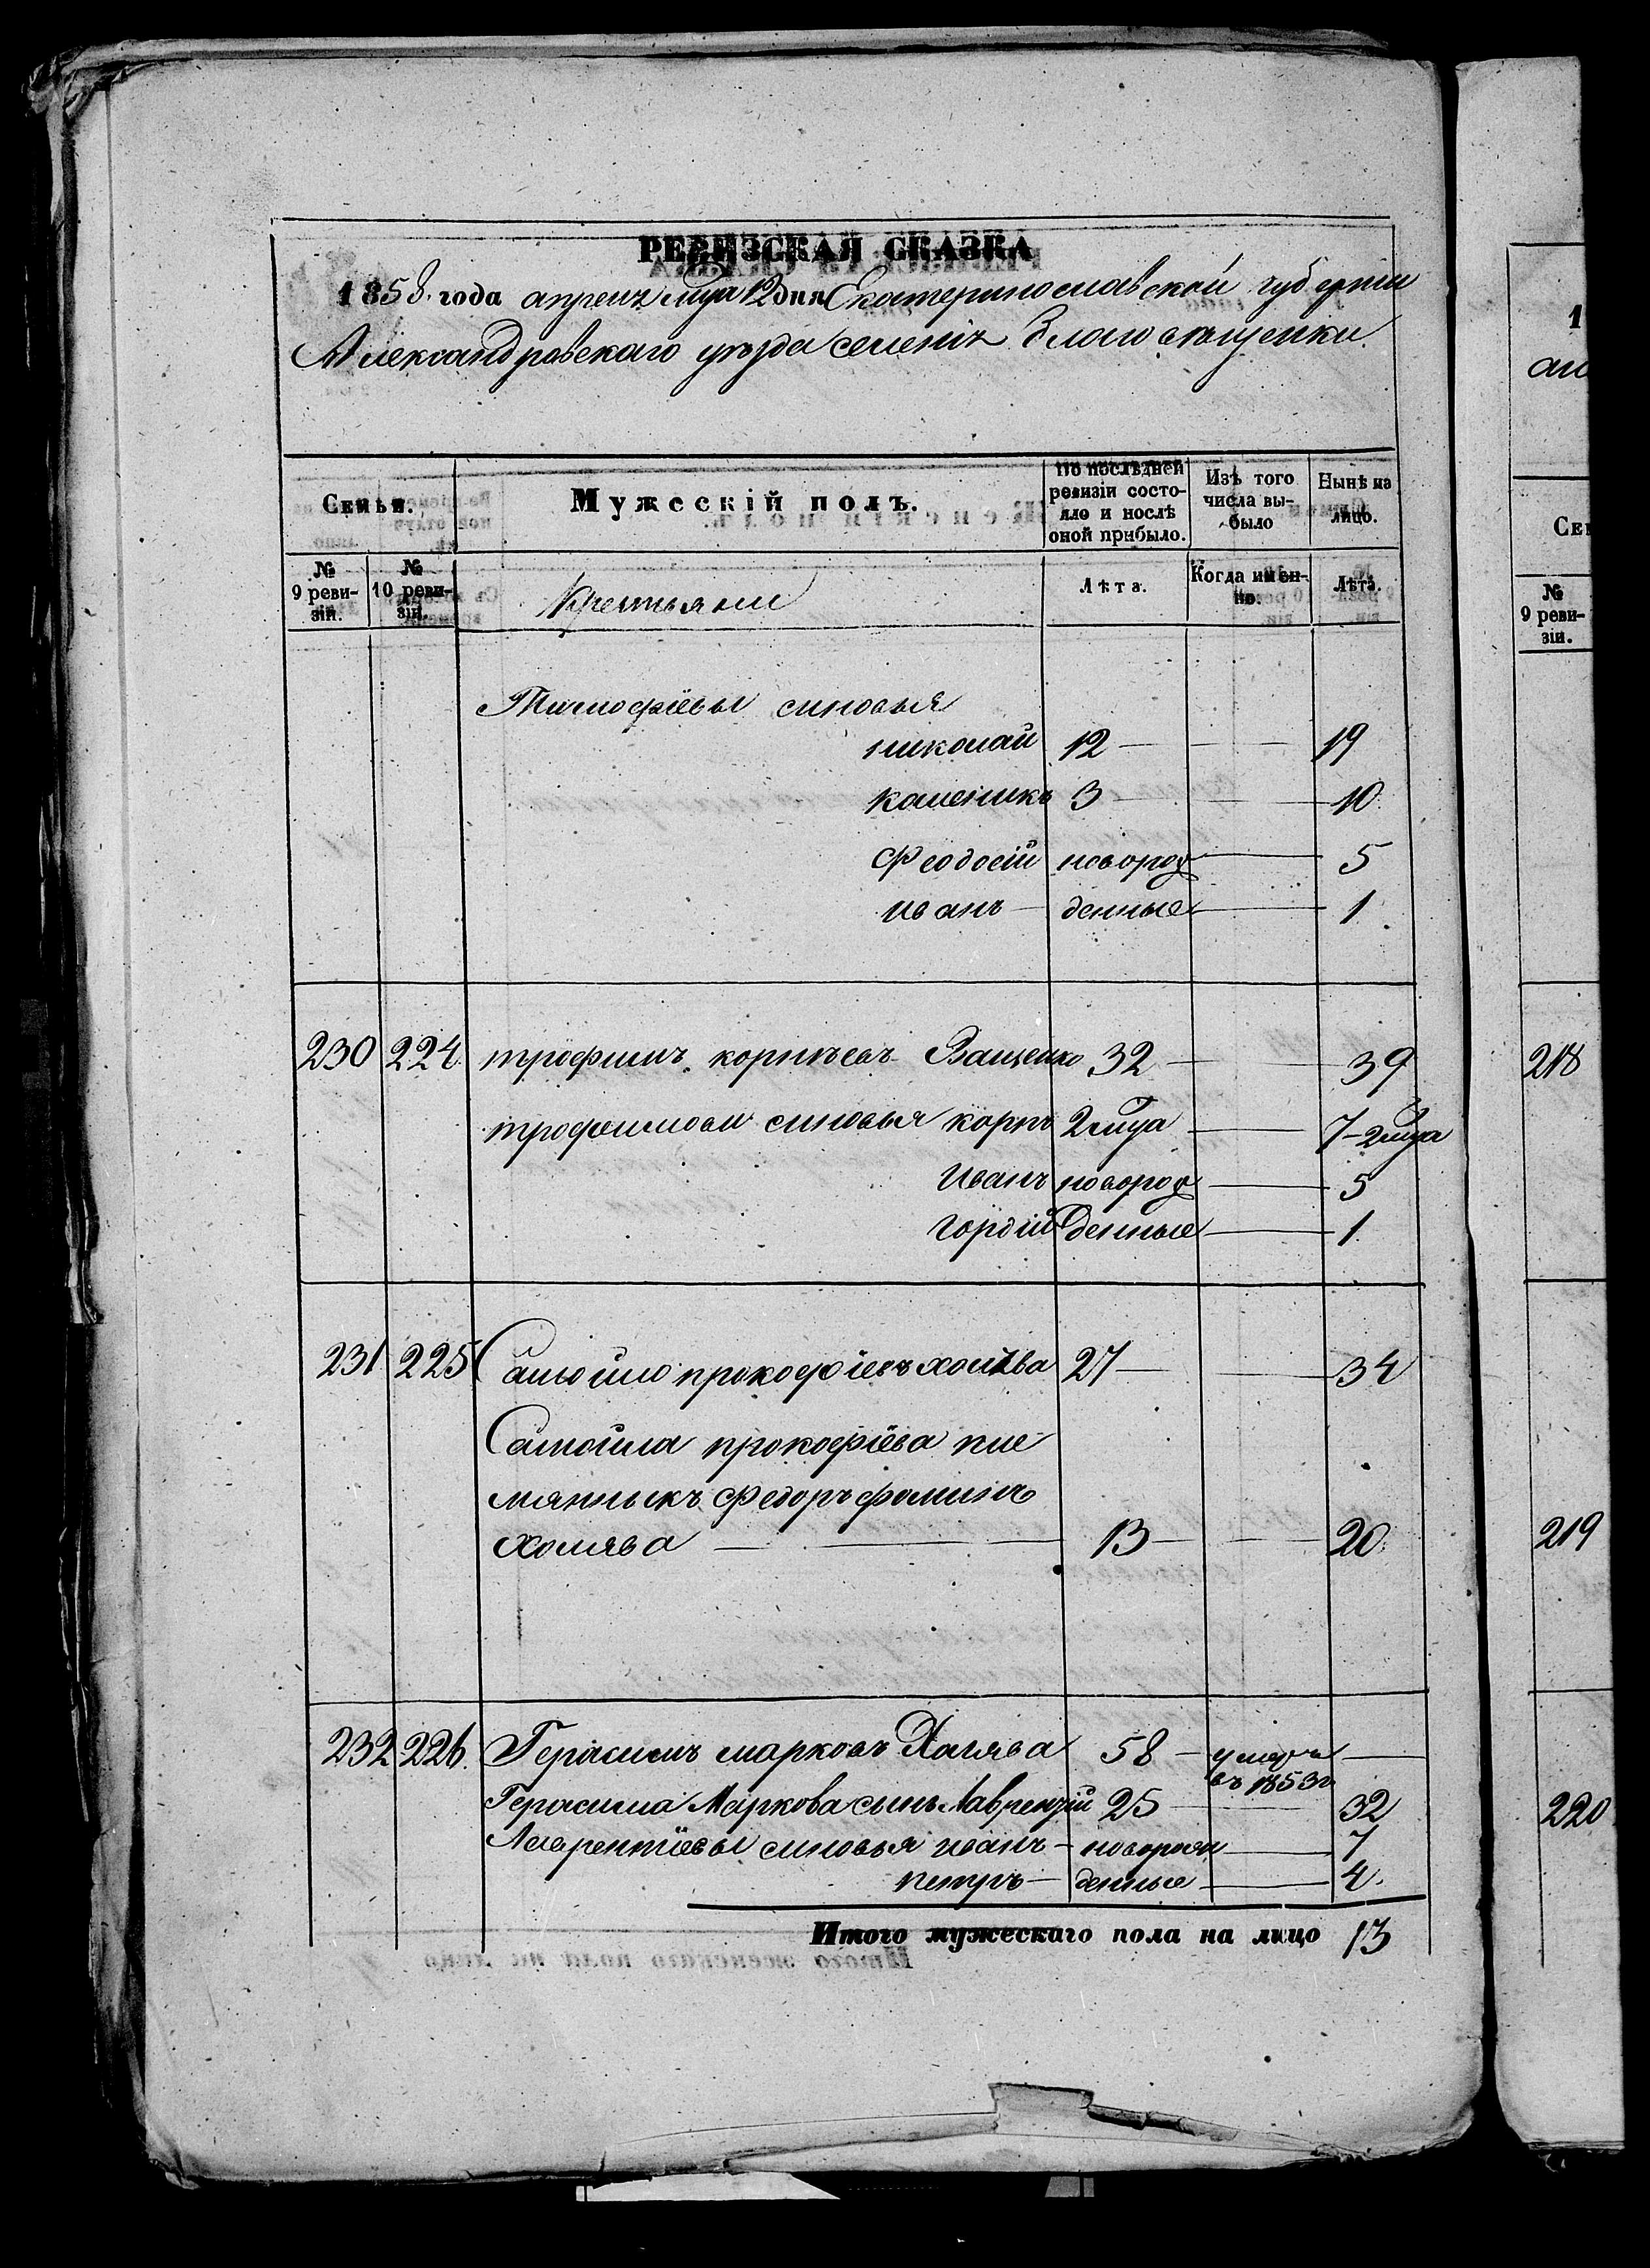 РЕВИЗСКАЯ СКАЗКА
1858. года апреля мца 12 дня Екатеринославской губернии
Александровскаго уезда селенія Благовещенки
Семьи.
Мужескій полъ.
По послѣдней ревизіи состояло и послѣ оной прибыло.
Изъ того числа выбыло
Нынѣ на лицо.
№ 9 ревизіи.
№ 10 ревизіи.
Крестьяни
Лѣта.
Когда именно.
Лѣта.
Тимофіевы синовья
николай 12 — — 19
калеників 3 — — 10
Феодосій новорож — 5
иванъ — денные — 1
230 224. трофимъ корнѣевъ Ващенко 32 — — 39
трофимови синовья корнъ 2 мца — 7-2 мца
Иванъ новорож — 5
гордій денные — 1
231 225 Самойло прокофіевъ холява 27 — — 34
Самойла прокофіева пле
мянныкъ Федоръ фоминъ
Холява — — 13 — — 20
232 226. Герасимъ марковъ Халява 58 — умеръ —
въ 1853г
Герасима Маркова сынъ Лаврентій 25 — — 32
Лаврентіевы синовья иванъ — новорож — 7
петръ — денные — 4.
Итого мужескаго пола на лицо 13
1
Сем
№ 9 ревизіи.
218
219
220